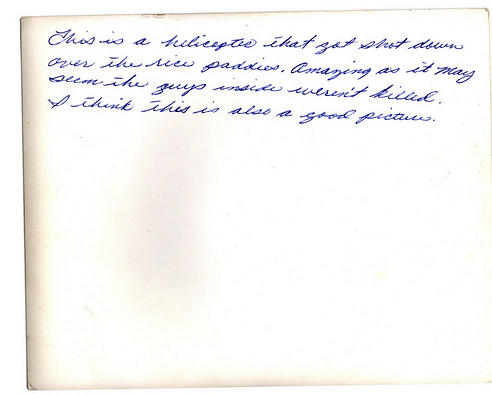 This is a helicopter that got shot down
over the rice paddies. Amazing as it may
seem the guys inside weren't killed.
I think this is also a good picture.